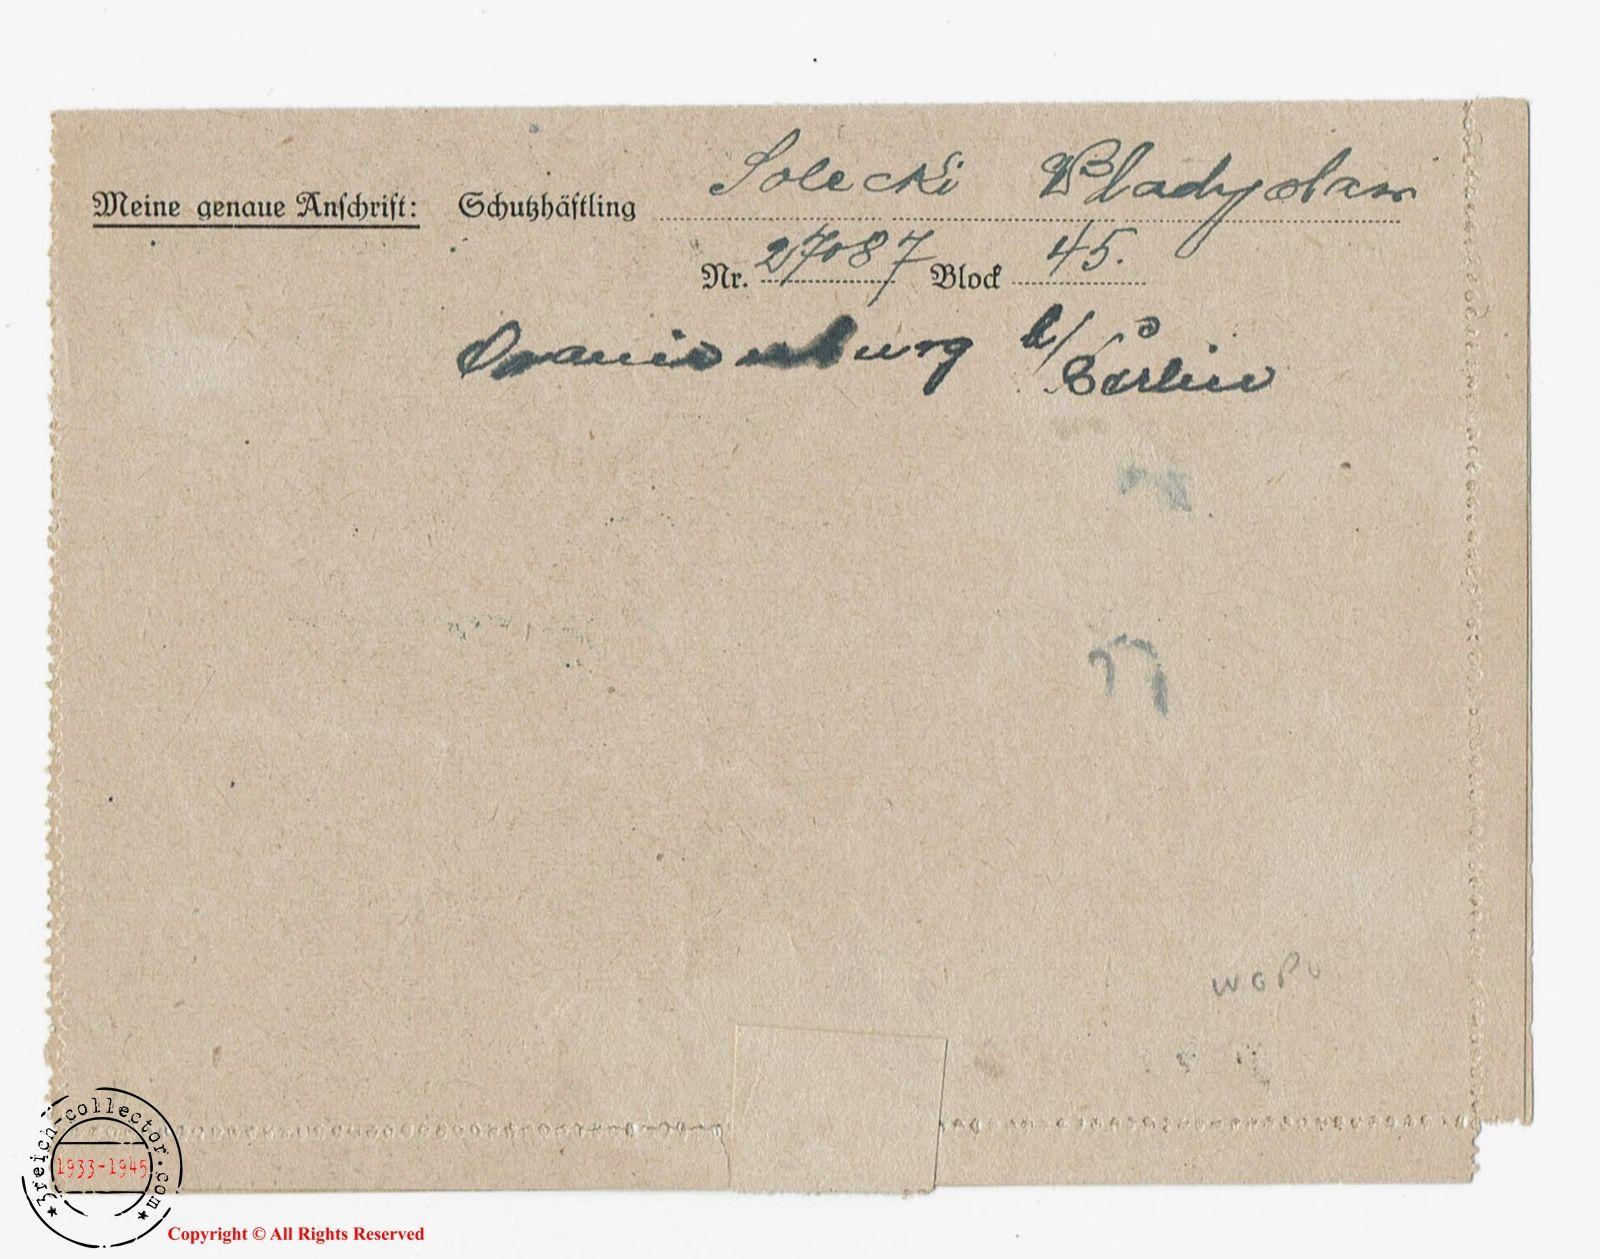 Meine genaue Anschrift: Schutzhäftling Solecki Wladyslaw
Nr. 27087 Block 45.
Oranienburg b/Berlin
WOPO
3reich-collector.com
1933-1945
Copyright © All Rights Reserved